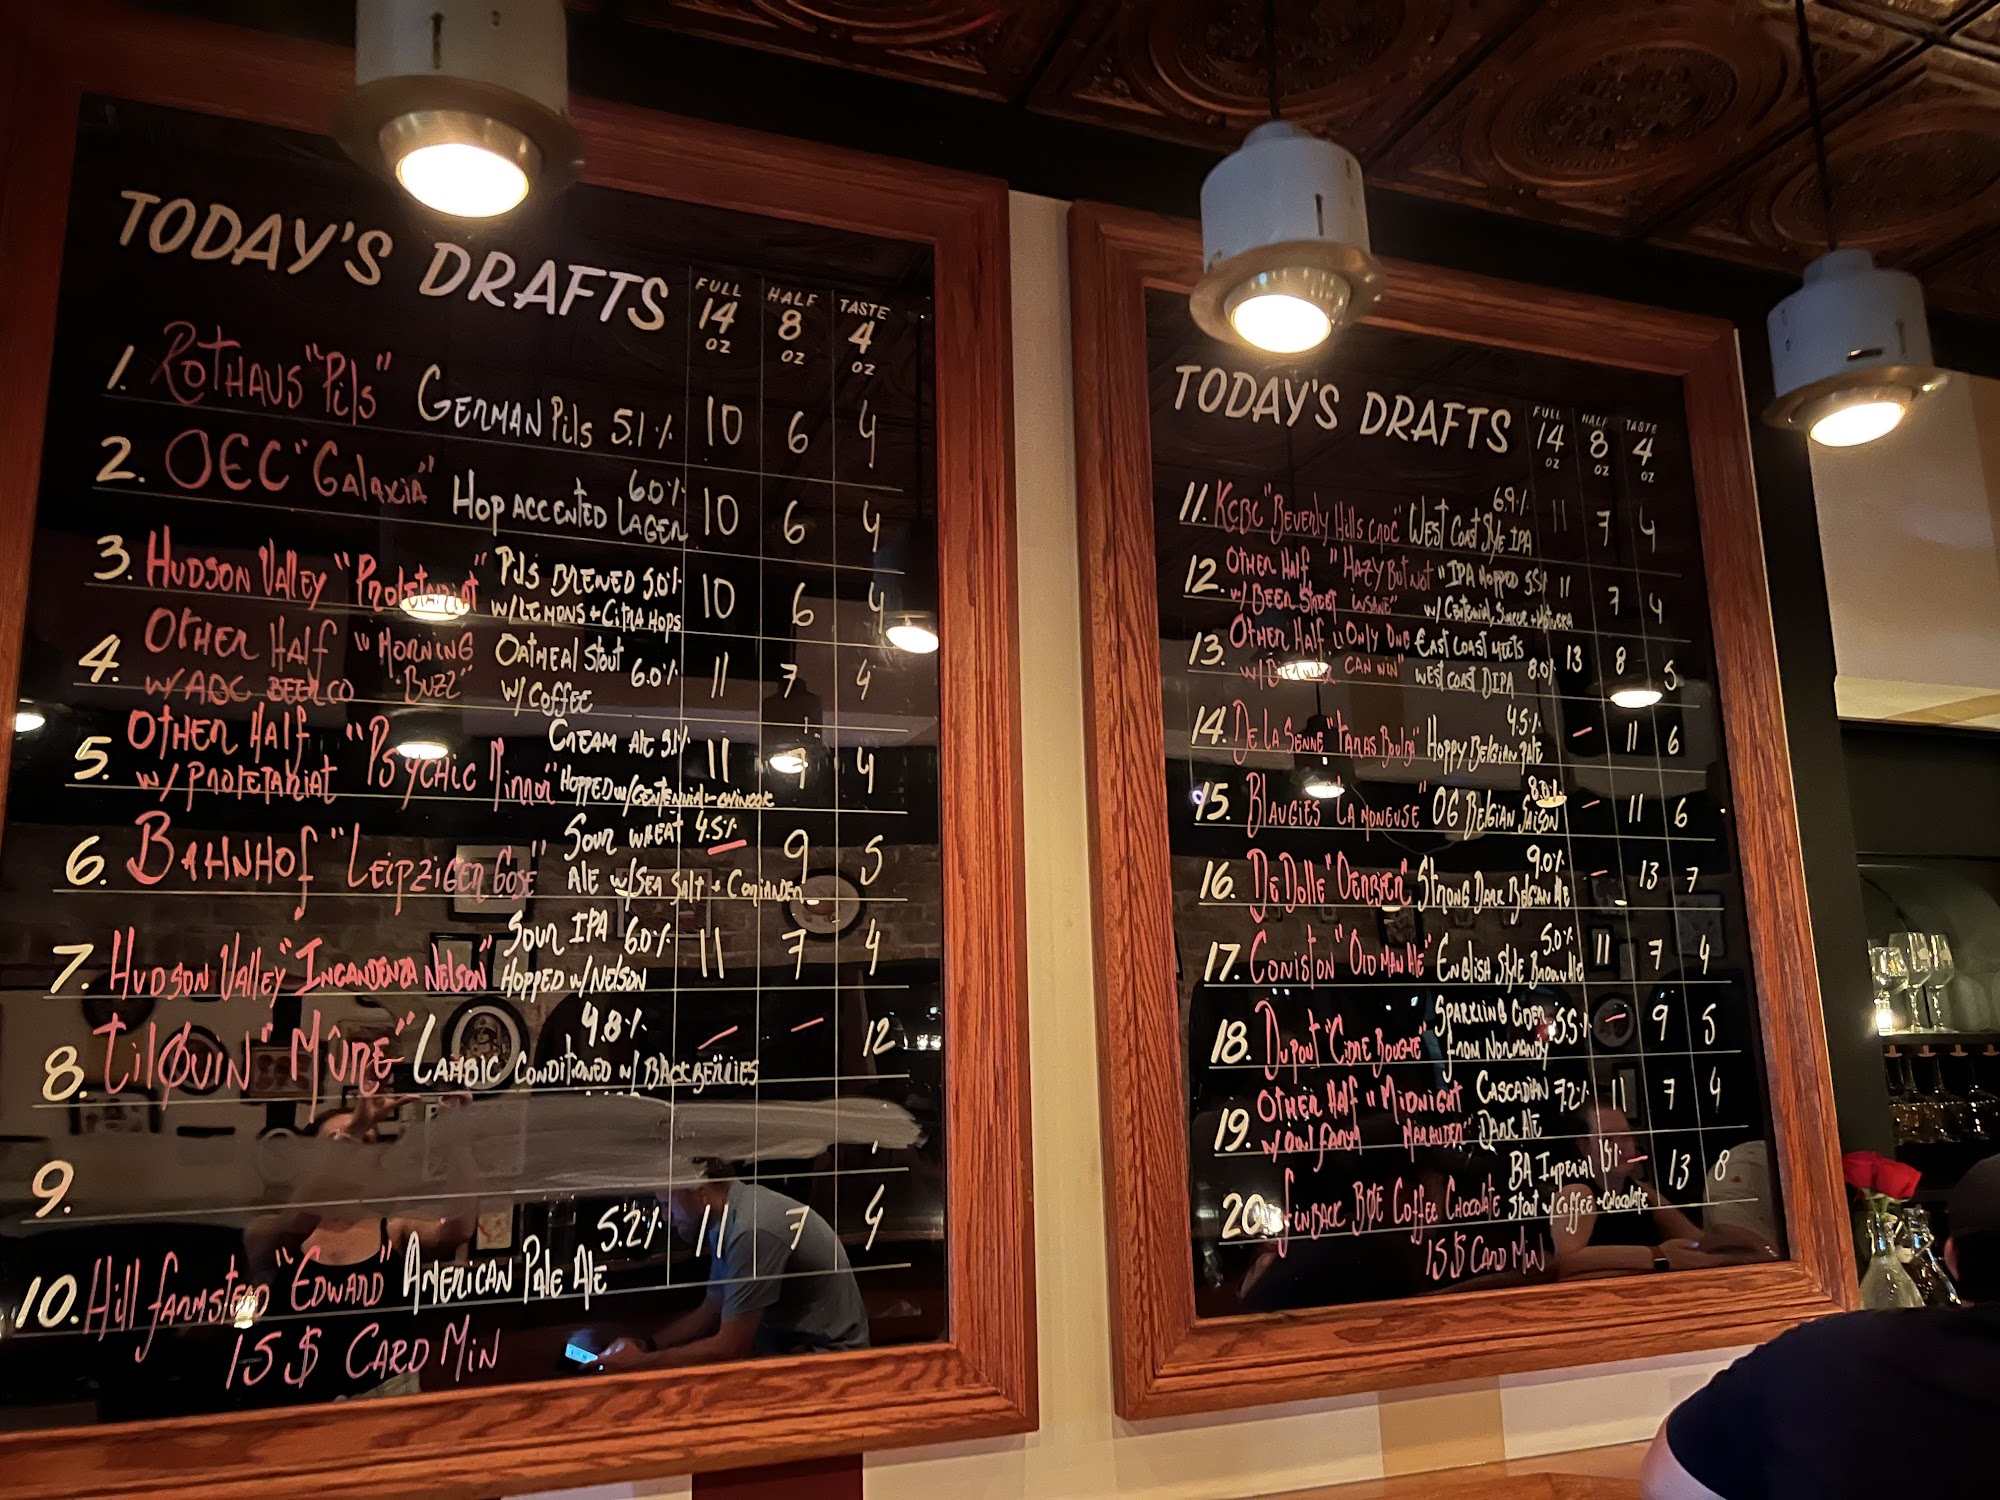 TODAY'S DRAFTS
FULL 14 OZ HALF 8 OZ TASTE 4 OZ
1. ROTHAUS "Pils" GERMAN Pils 5.1% 10 6 4
2. OEC "Galaxia" HOP ACCENTED LAGER 6.0% 10 6 4
3. HUDSON VALLEY "PROLETARIAT" Pils BREWED 5.0% 10 6 4
W/LEMONS + CITRA HOPS
4. OTHER HALF "MORNING OATMEAL STOUT 6.0% 11 7 4
W/ ADC BEER CO BUZZ" W/COFFEE
5. OTHER HALF "PSYCHIC MIRROR" CREAM ALE 5.1% 11 7 4
W/ PROLETARIAT HOPPED W/CENTENNIAL + CHINOOK
6. BAHNHOF "LEIPZIGER GOSE" SOUR WHEAT 4.5% — 9 5
ALE W/SEA SALT + CORIANDER
7. HUDSON VALLEY "INCANDENZA NELSON" SOUR IPA 6.0% 11 7 4
HOPPED W/NELSON
8. TILQUIN "MÛRE" 4.8% — — 12
LAMBIC CONDITIONED W/ BLACKBERRIES
9.
10. Hill FARMSTEAD "EDWARD" AMERICAN PALE ALE 5.2% 11 7 4
15 $ CARD MIN
TODAY'S DRAFTS
FULL 14 OZ HALF 8 OZ TASTE 4 OZ
11. KCBC "BEVERLY HILLS CROC" WEST COAST STYLE IPA 6.9% 11 7 4
12. OTHER HALF "HAZY BUT NOT IPA HOPPED 5.5% 11 7 4
W/ BEER STREET INSANE" W/ CENTENNIAL, SIMCOE +
13. OTHER HALF "ONLY ONE EAST COAST MEETS 13 8 5
W/ CAN WIN" WEST COAST DIPA 8.0%
14. DE LA SENNE "TARAS BOULBA" HOPPY BELGIAN ALE 4.5% — 11 6
15. BLAUGIES "LA MONEUSE" OG BELGIAN SAISON 8.0% — 11 6
16. DE DOLLE "OERBIER" STRONG DARK BELGIAN ALE 9.0% — 13 7
17. CONISTON "OLD MAN ALE" ENGLISH STYLE BROWN ALE 5.0% 11 7 4
18. DUPONT "CIDRE BOUCHÉ" SPARKLING CIDER 5.5% — 9 5
FROM NORMANDY
19. OTHER HALF "MIDNIGHT CASCADIAN 7.2% 11 7 4
W/ OWL FARM MARAUDER" DARK ALE
20. FINBACK BDE COFFEE CHOCOLATE BA IMPERIAL — 13 8
STOUT W/COFFEE + CHOCOLATE
15 $ CARD MIN